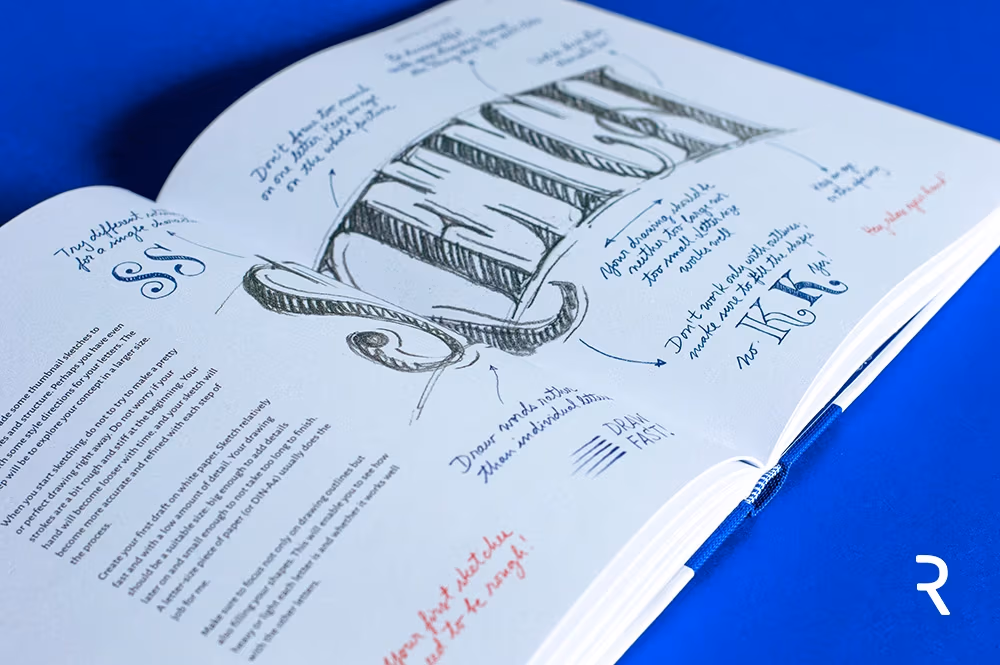 Don't focus too much
on one letter. Keep an eye
on the whole picture
SKETCH
Try different
for a single
SS
Your drawing should be
neither too large nor
too small. Letter size
works well
Don't work only with outlines,
make sure to fill the shapes!
no. K K Yes!
Draw words rather
than individual letters
DRAW
FAST!
some thumbnail sketches to
and structure. Perhaps you have even
some style directions for your letters. The
will be to explore your concept in a larger size.
When you start sketching, do not to try to make a pretty
or perfect drawing right away. Do not worry if your
strokes are a bit rough and stiff at the beginning. Your
hand will become looser with time, and your sketch will
become more accurate and refined with each step of
the process.
Create your first draft on white paper. Sketch relatively
fast and with a low amount of detail. Your drawing
should be a suitable size: big enough to add details
later on and small enough to not take too long to finish.
A letter-size piece of paper (or DIN-A4) usually does the
job for me.
Make sure to focus not only on drawing outlines but
also filling your shapes. This will enable you to see how
heavy or light each letter is and whether it works well
with the other letters.
Your first sketches
to be rough!
R